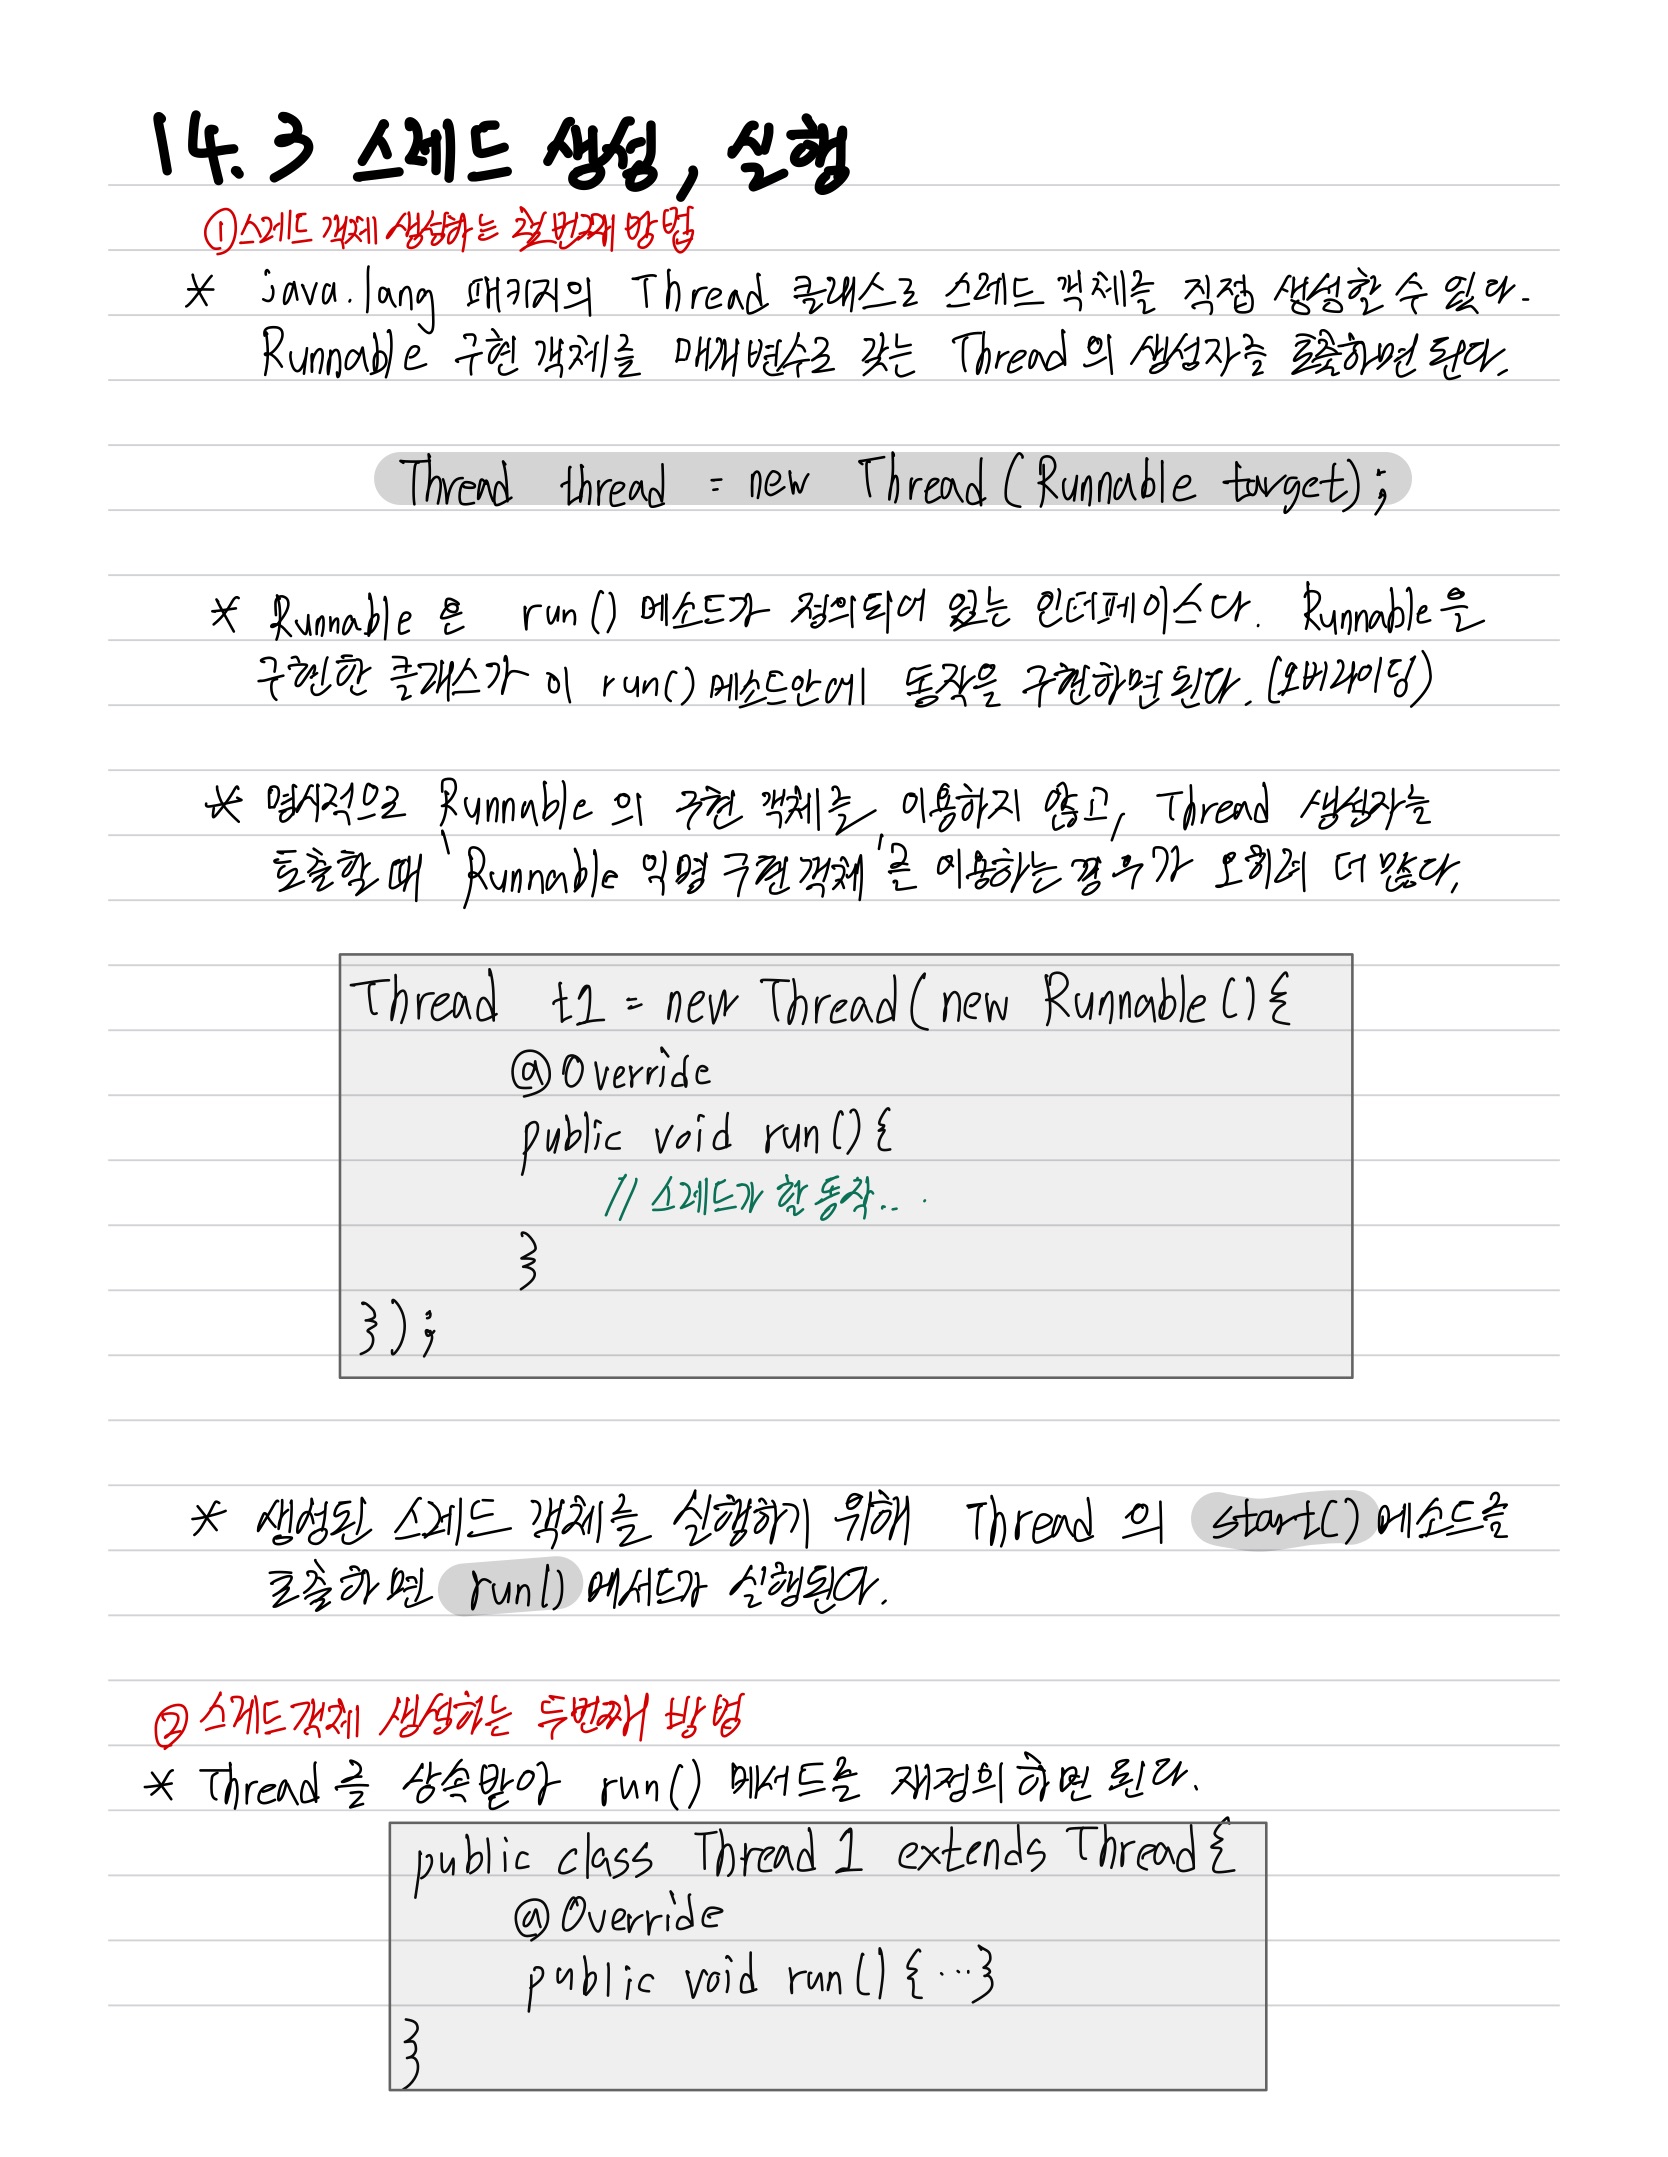 14.3 스레드 생성, 실행
① 스레드 객체 생성하는 첫번째 방법
* java.lang 패키지의 Thread 클래스로 스레드 객체를 직접 생성할 수 있다.
Runnable 구현 객체를 매개변수로 갖는 Thread의 생성자를 호출하면 된다.
Thread thread = new Thread(Runnable target);
* Runnable은 run() 메소드가 정의되어 있는 인터페이스다. Runnable을
구현한 클래스가 이 run() 메소드안에 동작을 구현하면 된다. (오버라이딩)
* 명시적으로 Runnable의 구현 객체를 이용하지 않고, Thread 생성자를
호출할 때 'Runnable 익명 구현 객체'를 이용하는 경우가 오히려 더 많다.
Thread t1 = new Thread(new Runnable(){
@Override
public void run(){
// 스레드가 할 동작...
}
});
* 생성된 스레드 객체를 실행하기 위해 Thread의 start() 메소드를
호출하면 run() 메서드가 실행된다.
② 스레드 객체 생성하는 두번째 방법
* Thread를 상속받아 run() 메서드를 재정의하면 된다.
public class Thread1 extends Thread{
@Override
public void run(){...}
}